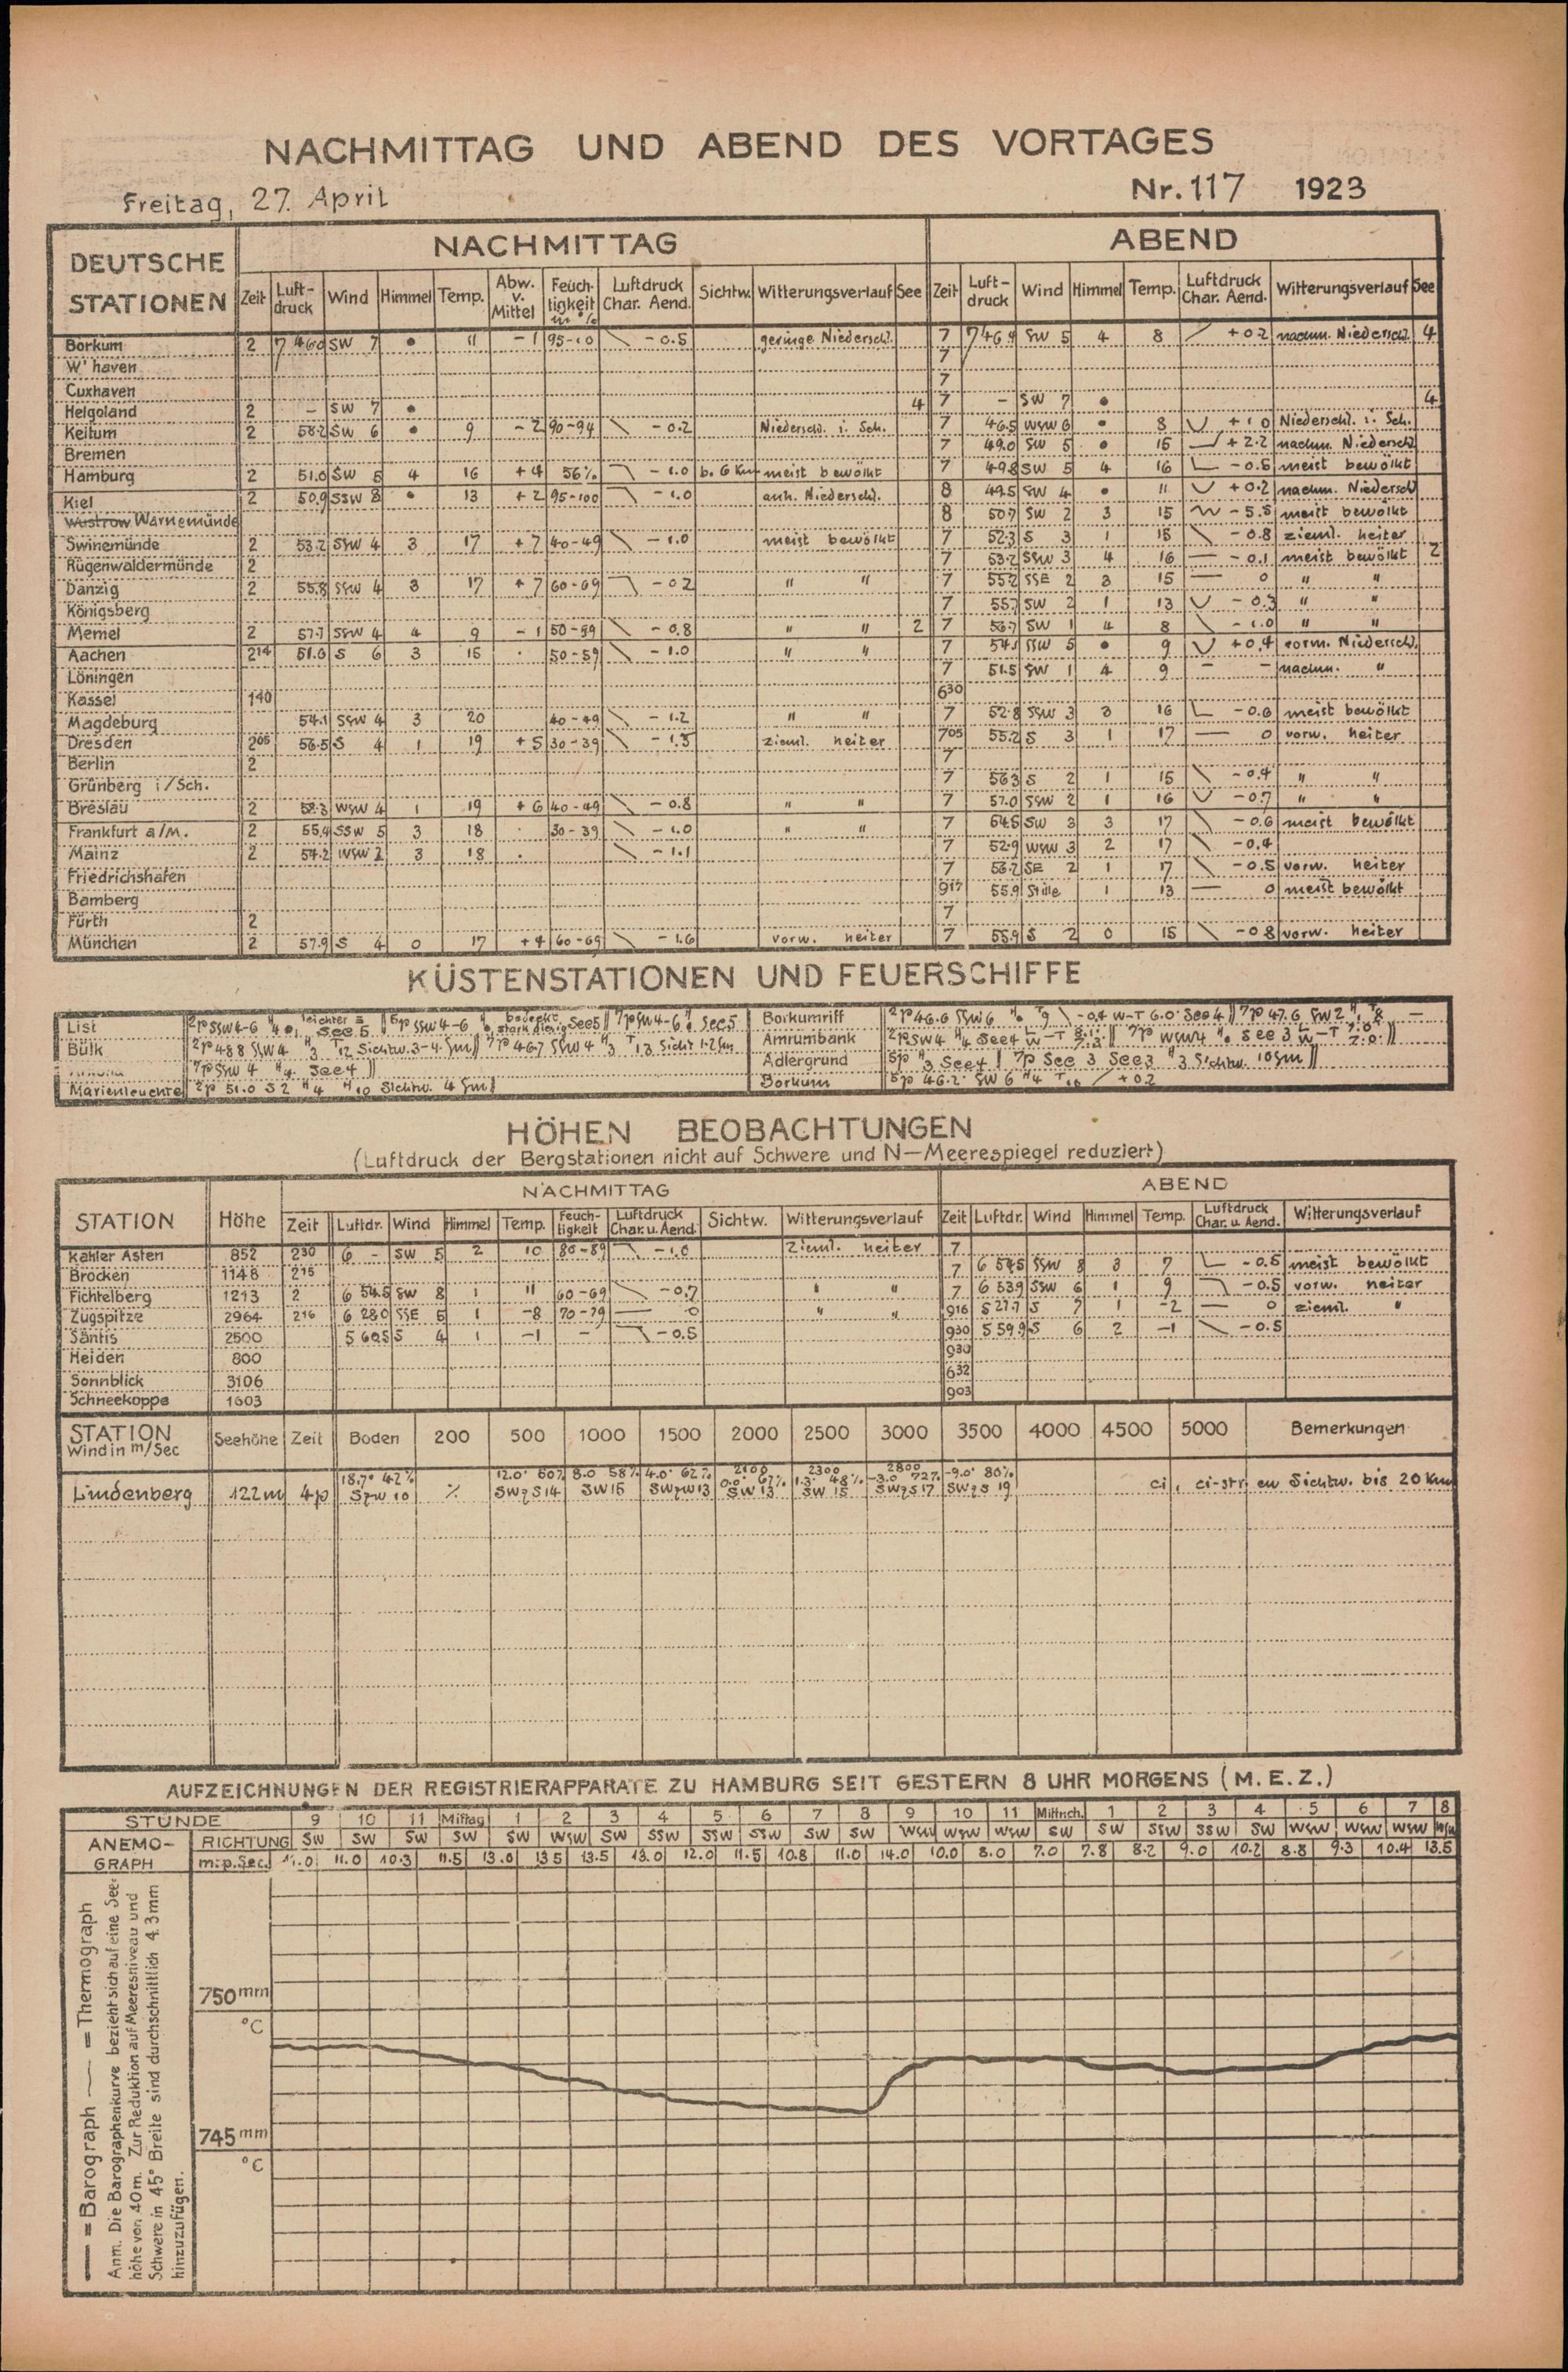 NACHMITTAG UND ABEND DES VORTAGES
Freitag, 27. April Nr. 117 1923
DEUTSCHE STATIONEN NACHMITTAG ABEND
Zeit Luft-druck Wind Himmel Temp. Abw. v. Mittel Feuch-tigkeit in % Luftdruck Char. Aend. Sichtw. Witterungsverlauf See Zeit Luft-druck Wind Himmel Temp. Luftdruck Char. Aend. Witterungsverlauf See
Borkum 2 746.0 SW 7 • 11 -1 95-10 -0.5 geringe Niederschl. 7 746.9 SW 5 4 8 +0.2 nachm. Niederschl. 4
W'haven 7
Cuxhaven 7
Helgoland 2 - SW 7 • 4 7 - SW 7 • 4
Keitum 2 58.2 SW 6 • 9 -2 90-94 -0.2 Niederschl. i. Sch. 7 46.5 WSW 6 • 8 +1.0 Niederschl. i. Sch.
Bremen 7 49.0 SW 5 • 15 +2.2 nachm. Niedersch
Hamburg 2 51.0 SW 5 4 16 +4 56% -1.0 b. 6 Km meist bewölkt 7 49.8 SW 5 4 16 -0.5 meist bewölkt
Kiel 2 50.9 SSW 8 • 13 +2 95-100 -1.0 anh. Niederschl. 8 49.5 SW 4 • 11 +0.2 nachm. Niedersch
Wustrow Warnemünde 8 50.7 SW 2 3 15 -5.5 meist bewölkt
Swinemünde 2 53.2 SSW 4 3 17 +7 40-49 -1.0 meist bewölkt 7 52.3 S 3 1 15 -0.8 zieml. heiter
Rügenwaldermünde 2 7 53.2 SSW 3 4 16 -0.1 meist bewölkt 2
Danzig 2 55.8 SSW 4 3 17 +7 60-69 -0.2 " " 7 55.2 SSE 2 3 15 0 " "
Königsberg 7 55.7 SW 2 1 13 -0.3 " "
Memel 2 57.7 SSW 4 4 9 -1 50-59 -0.8 " " 2 7 56.7 SW 1 4 8 -1.0 " "
Aachen 2¹⁴ 51.6 S 6 3 15 · 50-59 -1.0 " " 7 SSW 5 • 9 +0.4 vorm. Niederschl.
Löningen 7 51.5 SW 1 4 9 - - nachm. "
Kassel 1⁴⁰ 6³⁰
Magdeburg 54.1 SSW 4 3 20 40-49 -1.2 " " 7 52.8 SSW 3 3 16 -0.6 meist bewölkt
Dresden 2⁰⁵ 56.5 S 4 1 19 +5 30-39 -1.3 zieml. heiter 7⁰⁵ 55.2 S 3 1 17 0 vorw. heiter
Berlin 2 7
Grünberg i/Sch. 7 56.3 S 2 1 15 -0.4 " "
Breslau 2 58.3 WSW 4 1 19 +6 40-49 -0.8 " " 7 57.0 SSW 2 1 16 -0.7 " "
Frankfurt a/M. 2 55.4 SSW 5 3 18 · 30-39 -1.0 " " 7 54.5 SW 3 3 17 -0.6 meist bewölkt
Mainz 2 54.2 WSW 2 3 18 · -1.1 7 52.9 WSW 3 2 17 -0.4
Friedrichshafen 7 56.2 SE 2 1 17 -0.5 vorw. heiter
Bamberg 9¹⁷ 55.9 Stille 1 13 0 meist bewölkt
Fürth 2 7
München 2 57.9 S 4 0 17 +4 60-69 -1.6 vorw. heiter 7 55.9 S 2 0 15 -0.8 vorw. heiter
KÜSTENSTATIONEN UND FEUERSCHIFFE
List 2p SSW 4-6 leichter See 5 5p SSW 4-6 bedeckt stark diesig See 5 7p SW 4-6 See 5 Borkumriff 2p 46.6 SSW 6 T9 -0.4 W-T 6.0 See 4 7p 47.6 SW 2 T8 -
Bülk 2p 48.8 SSW 4 H3 T12 Sichtw. 3-4 Sm 7p 46.7 SSW 4 H3 T13 Sicht 1-2 Sm Amrumbank 2p SW 4 H4 See 4 7p WSW 4 See 3
7p SSW 4 H4 See 4 Adlergrund 5p H3 See 4 7p See 3 See 3 H3 Sichtw. 10 Sm
Marienleuchte 2p 51.0 S 2 H4 H10 Sichtw. 4 Sm Borkum 5p 46.2 SW 6 H4 T10 +0.2
HÖHEN BEOBACHTUNGEN
(Luftdruck der Bergstationen nicht auf Schwere und N-Meerespiegel reduziert)
STATION Höhe NACHMITTAG ABEND
Zeit Luftdr. Wind Himmel Temp. Feuch-tigkeit Luftdruck Char. u. Aend. Sichtw. Witterungsverlauf Zeit Luftdr. Wind Himmel Temp. Luftdruck Char. u. Aend. Witterungsverlauf
Kahler Asten 852 2³⁰ 6 - SW 5 2 10 80-89 -1.0 zieml. heiter 7
Brocken 1148 2¹⁵ 7 6 54.5 SSW 8 3 7 -0.5 meist bewölkt
Fichtelberg 1213 2 6 54.5 SW 8 1 11 60-69 -0.7 " " 7 6 53.9 SSW 6 1 9 -0.5 vorw. heiter
Zugspitze 2964 2¹⁶ 6 28.0 SSE 5 1 -8 70-79 0 " " 9¹⁶ 5 27.7 S 7 1 -2 0 zieml. "
Säntis 2500 5 60.5 S 4 1 -1 - -0.5 9³⁰ 5 59.9 S 6 2 -1 -0.5
Heiden 800 9³⁰
Sonnblick 3106 6³²
Schneekoppe 1603 9⁰³
STATION Wind in m/Sec Seehöhe Zeit Boden 200 500 1000 1500 2000 2500 3000 3500 4000 4500 5000 Bemerkungen
18.7° 42% 12.0° 60% 8.0 58% 4.0° 62% 2100 0.0° 67% 2300 1.3° 48% 2800 -3.0 72% -9.0° 80%
Lindenberg 122m 4p SzW 10 % SWzS 14 SW 15 SWzW 13 SW 13 SW 15 SWzS 17 SWzS 19 ci, ci-str. Sichtw. bis 20 Km
AUFZEICHNUNGEN DER REGISTRIERAPPARATE ZU HAMBURG SEIT GESTERN 8 UHR MORGENS (M. E. Z.)
STUNDE 9 10 11 Mittag 1 2 3 4 5 6 7 8 9 10 11 Mittnch. 1 2 3 4 5 6 7 8
ANEMO-GRAPH RICHTUNG SW SW SW SW SW WSW SW SSW SSW SSW SW SW WSW WSW WSW SW SW SSW SSW SW WSW WSW WSW WSW
m. p. Sec. 11.0 11.0 10.3 11.5 13.0 13.5 13.5 13.0 12.0 11.5 10.8 11.0 14.0 10.0 8.0 7.0 7.8 8.2 9.0 10.2 8.8 9.3 10.4 13.5
750 mm
°C
745 mm
°C
— = Barograph — = Thermograph
Anm. Die Barographenkurve bezieht sich auf eine See-
höhe von 40 m. Zur Reduktion auf Meeresniveau und
Schwere in 45° Breite sind durchschnittlich 4.3 mm
hinzuzufügen.